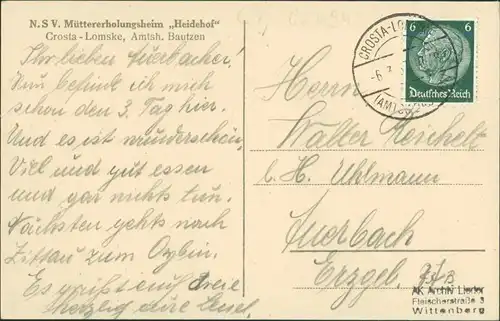 N.S V. Müttererholungsheim „Heidehof"
Crosta-Lomske, Amtsh. Bautzen
Ihr lieben Auerbacher!
Nun befinde ich mich
schon den 3. Tag hier.
Und es ist wunderschön,
Viel und gut essen
und gar nichts tun.
Nächsten gehts nach
Zittau zum Oybin.
Es grüßt euch
herzlig eure
CROSTA-LO
6
Deutsches Reich
Herrn
Walter Reichelt
b. H. Uhlmann
Auerbach
Erzgeb.
AK Archiv Lieder
Fleischerstraße 3
Wittenberg